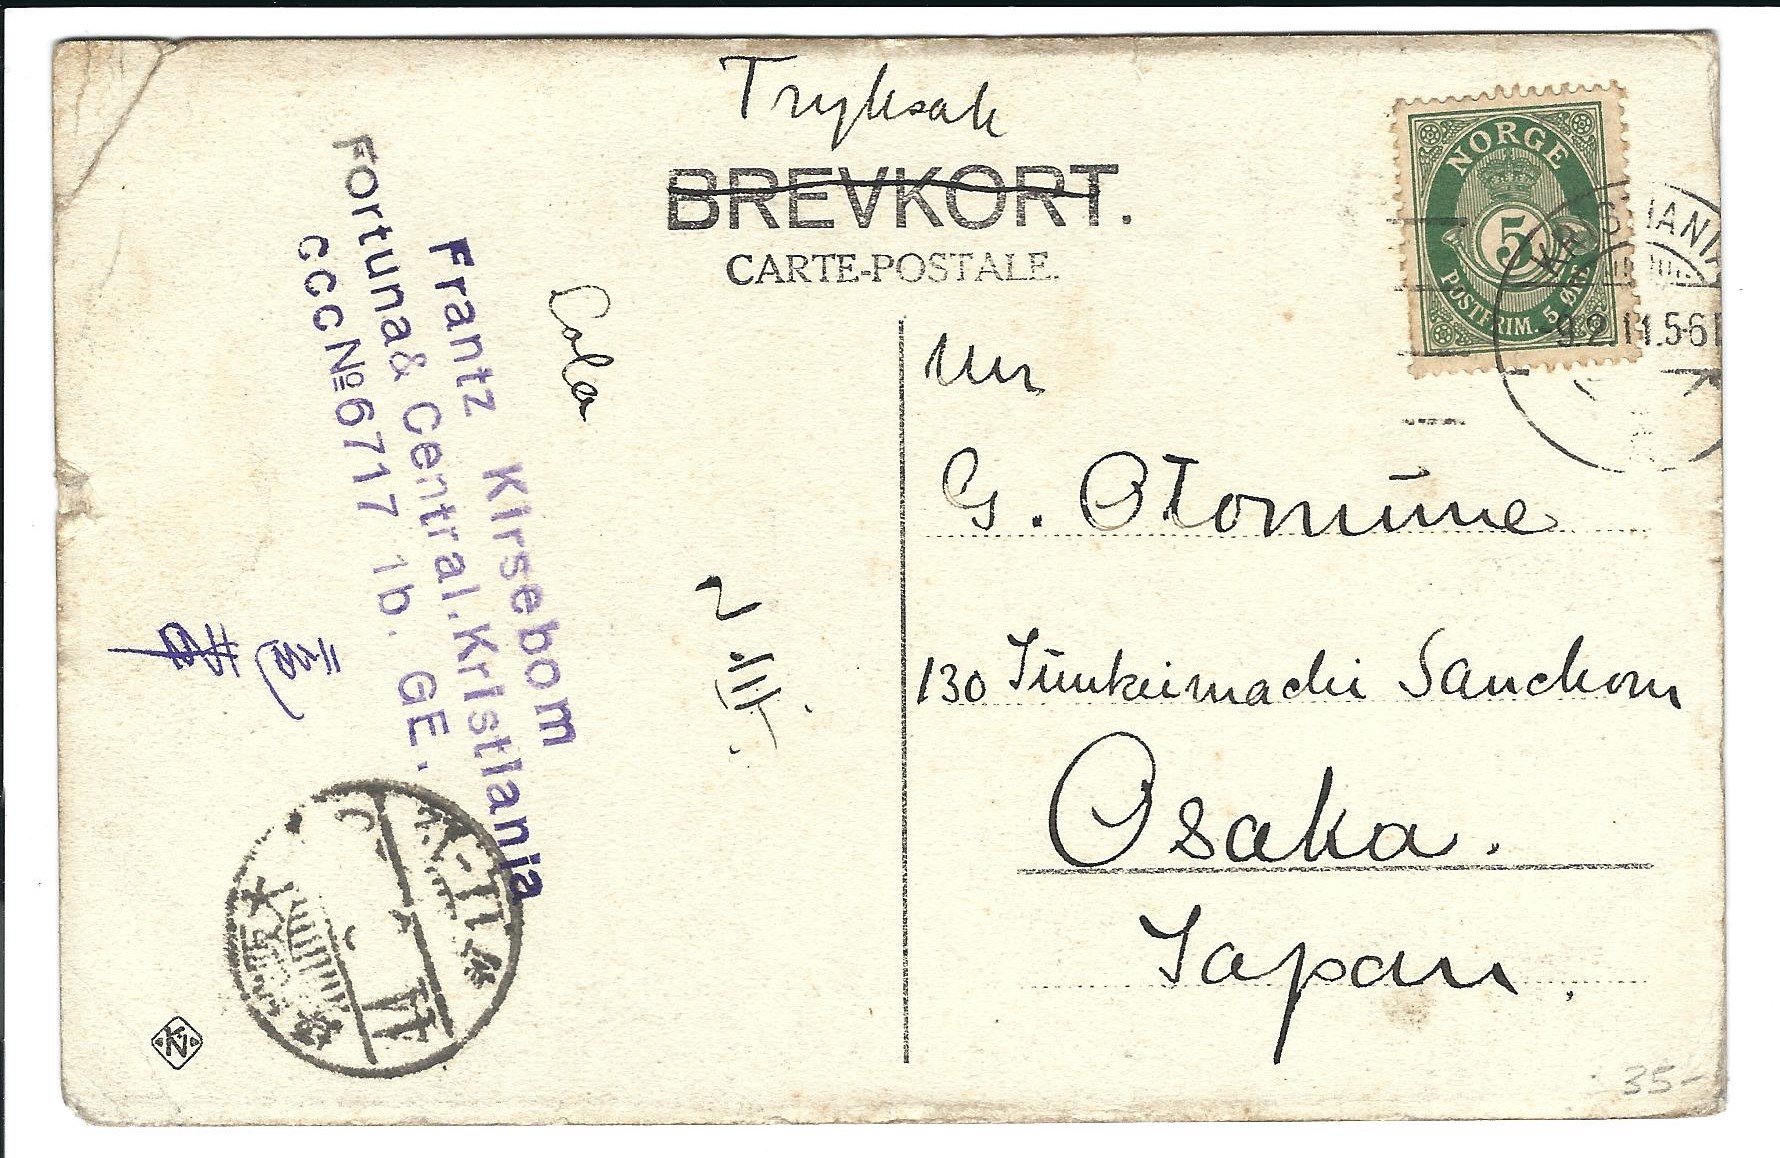 Tryksak
BREVKORT.
CARTE-POSTALE.
NORGE
5
POSTFRIM. 5 ØRE
9.2.11.5-6
K
Frantz Kirsebom
Fortuna & Central. Kristiania
CCC № 6717 1b. GE.
Mr
G. Otomune
130 Junkeimachi Sanchom
Osaka.
Japan.
2.III.
35-